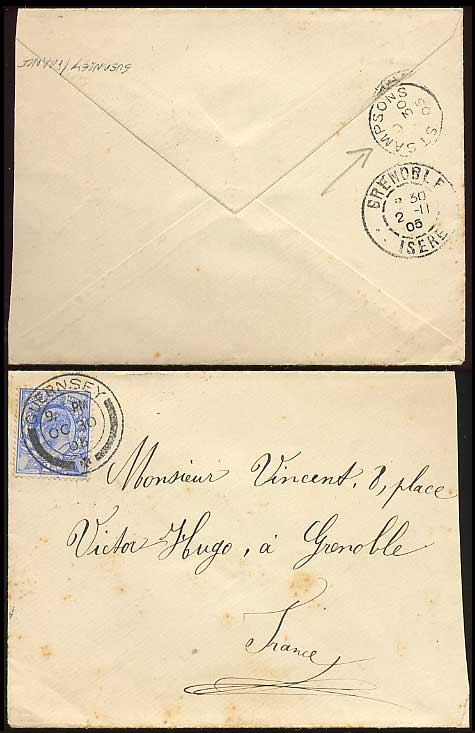 GUERNSEY/FRANCE
ST SAMPSONS
OC 30
05
GRENOBLE
30
2 -11
05
ISERE
GUERNSEY
9 PM
OC 30
05
Monsieur Vincent, 8, place
Victor Hugo, à Grenoble
France